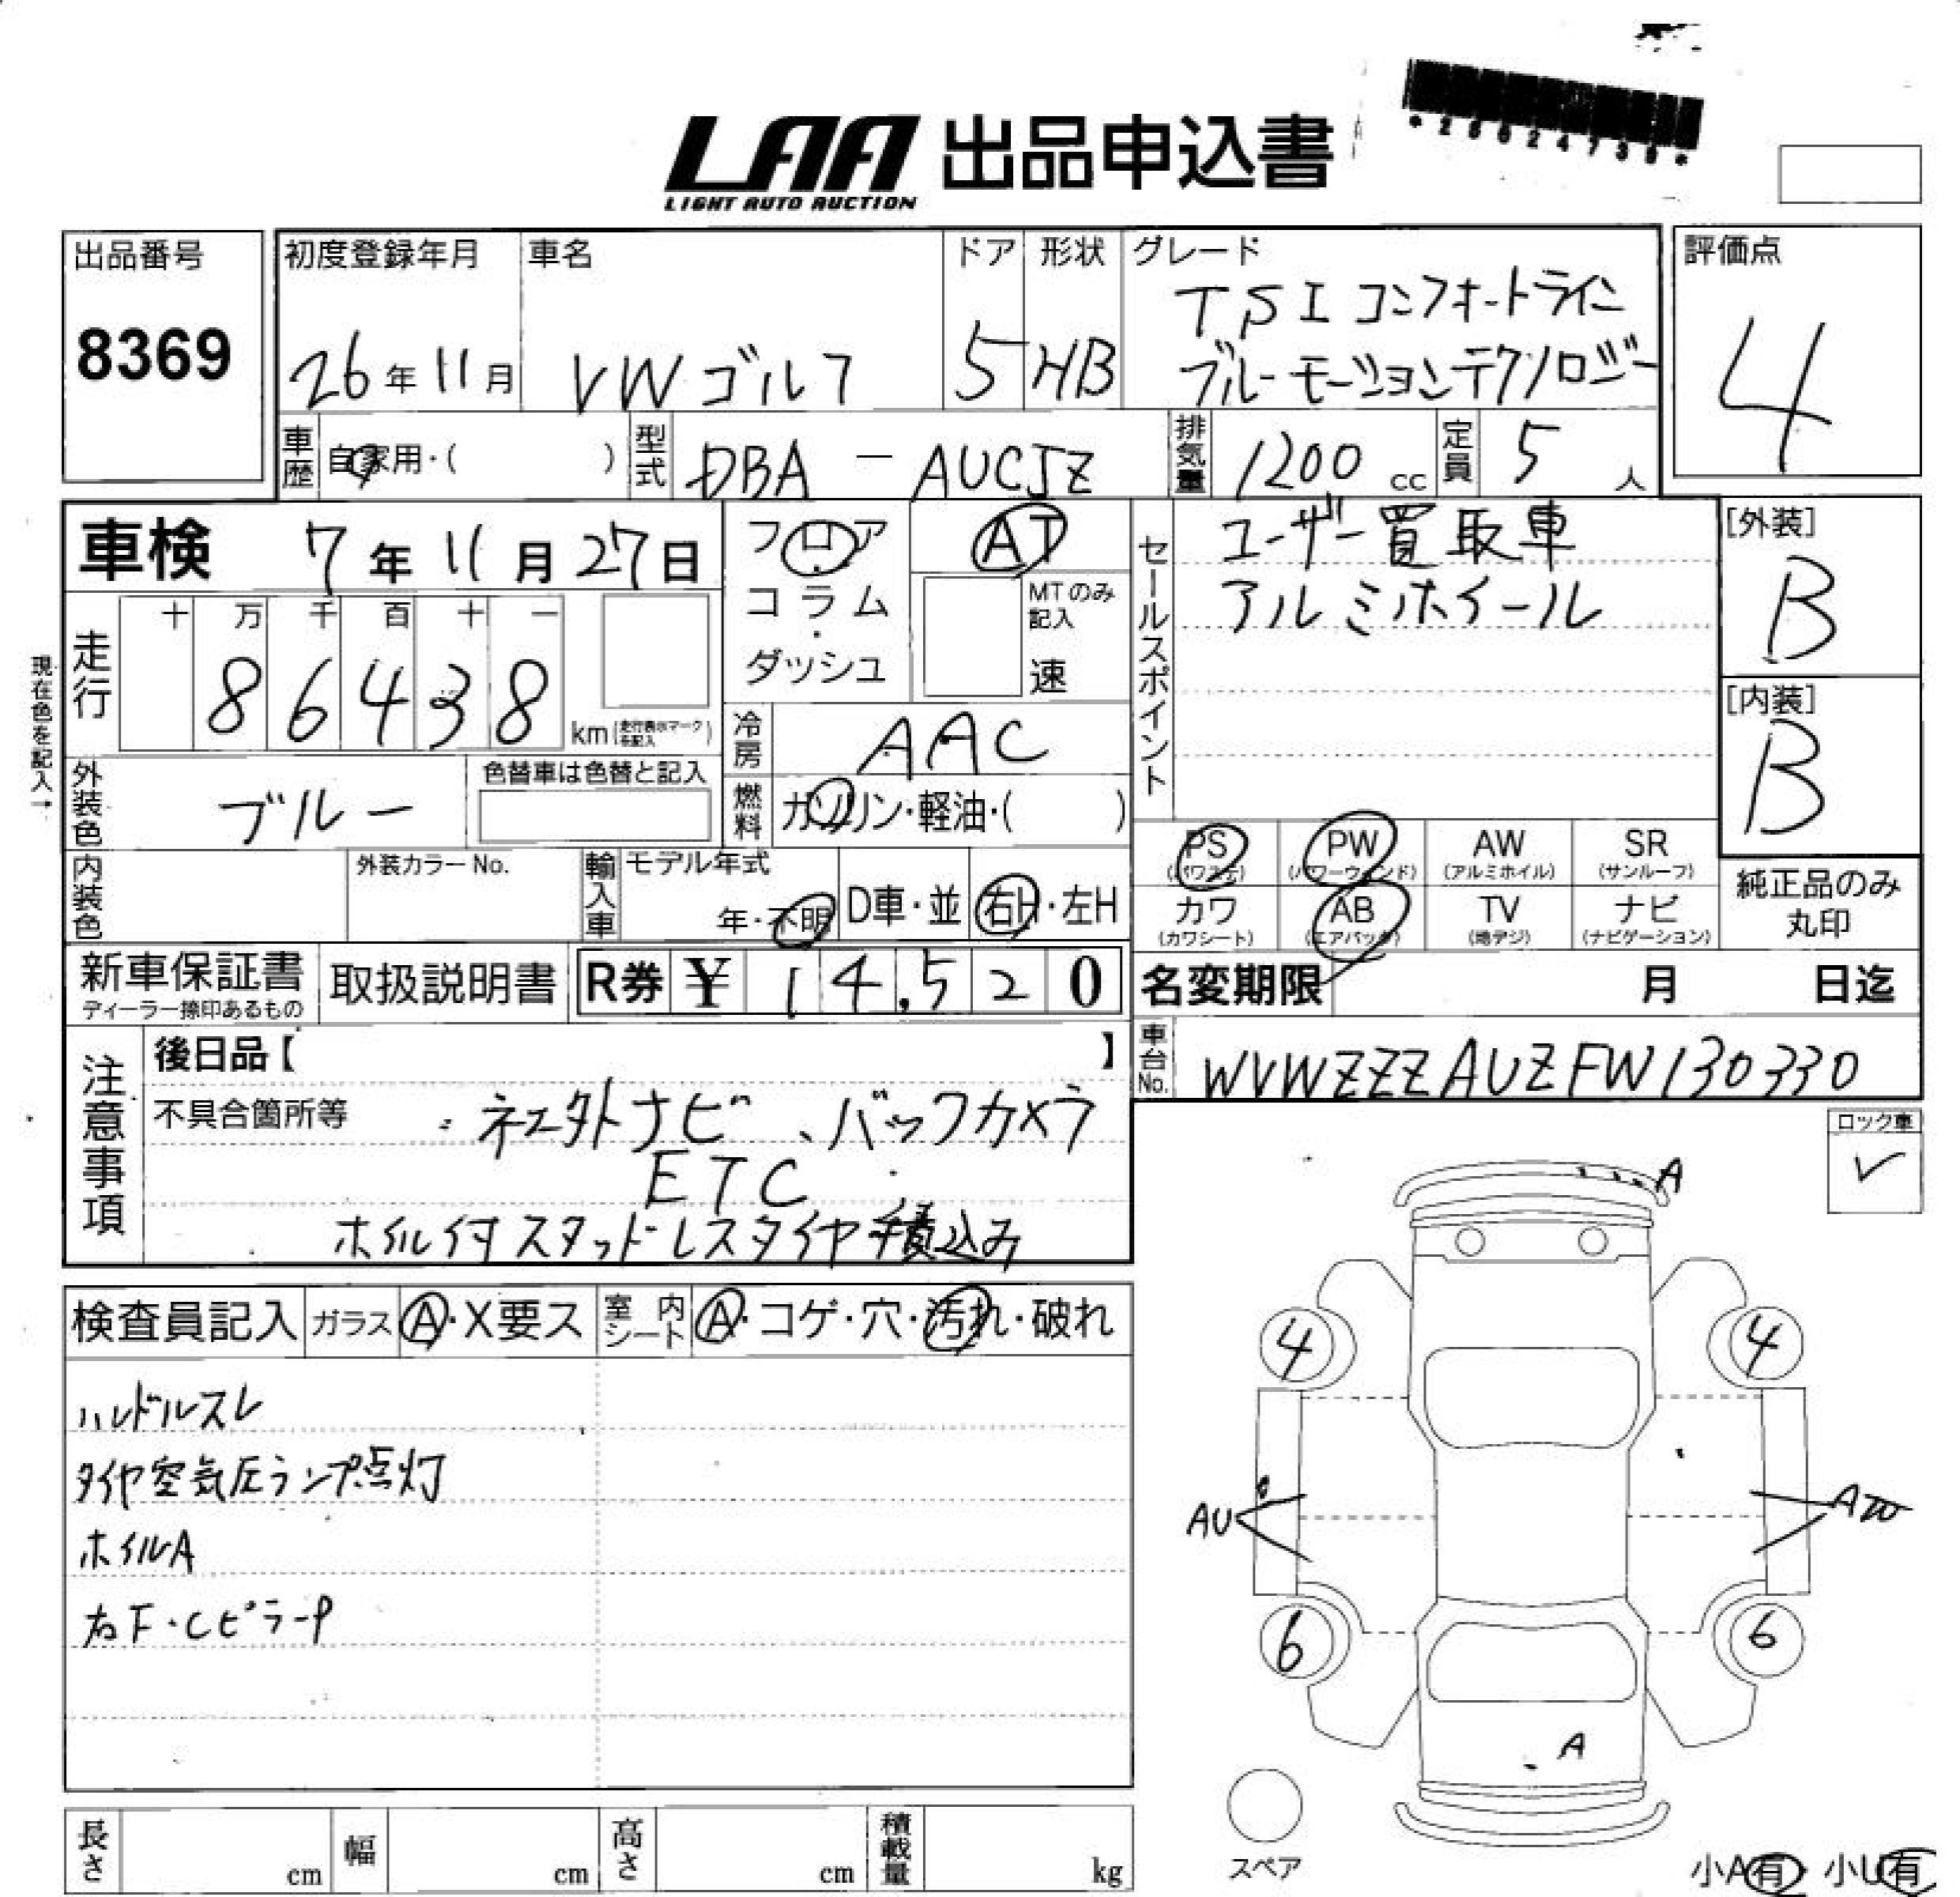 LAA 出品申込書
LIGHT AUTO AUCTION
出品番号
8369
初度登録年月
26年11月
車名
VWゴルフ
ドア
5
形状
HB
グレード
TSIコンフォートライン
ブルーモーションテクノロジー
評価点
4
車歴
自家用・( )
型式
DBA - AUCJZ
排気量
1200 cc
定員
5 人
車検 7年11月27日
フロア
コラム
・
ダッシュ
AT
MTのみ記入
速
セールスポイント
ユーザー買取車
アルミホイール
[外装]
B
[内装]
B
現在色を記入→
走行
十 万 千 百 十 一
8 6 4 3 8
km(走行表示マークを記入)
冷房
AAC
外装色
ブルー
色替車は色替と記入
燃料
ガソリン・軽油・( )
内装色
外装カラーNo.
輸入車
モデル年式
年・不明
D車・並
右H・左H
PS
(パワステ)
PW
(パワーウィンド)
AW
(アルミホイル)
SR
(サンルーフ)
カワ
(カワシート)
AB
(エアバッグ)
TV
(地デジ)
ナビ
(ナビゲーション)
純正品のみ
丸印
新車保証書
ディーラー捺印あるもの
取扱説明書
R券 ¥ 14,520
名変期限 月 日迄
車台No.
WVWZZZAUZFW130330
注意事項
後日品【 】
不具合箇所等
社外ナビ、バックカメラ
ETC
ホイル付スタッドレスタイヤ積込み
ロック車
✓
検査員記入
ガラス
A・X要ス
室内シート
A・コゲ・穴・汚れ・破れ
ハンドルスレ
タイヤ空気圧ランプ点灯
ホイルA
右F・CピラーP
A
4
4
AU
6
6
A
スペア
小A有 小U有
長さ
cm
幅
cm
高さ
cm
積載量
kg